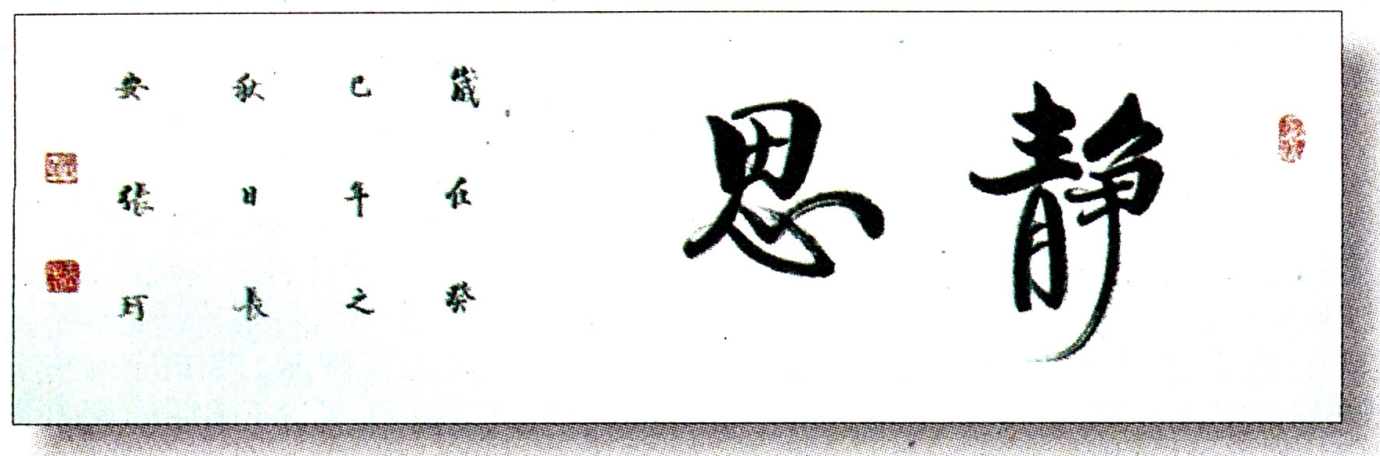 静思
歲在癸
巳年之
秋日長
安張珂